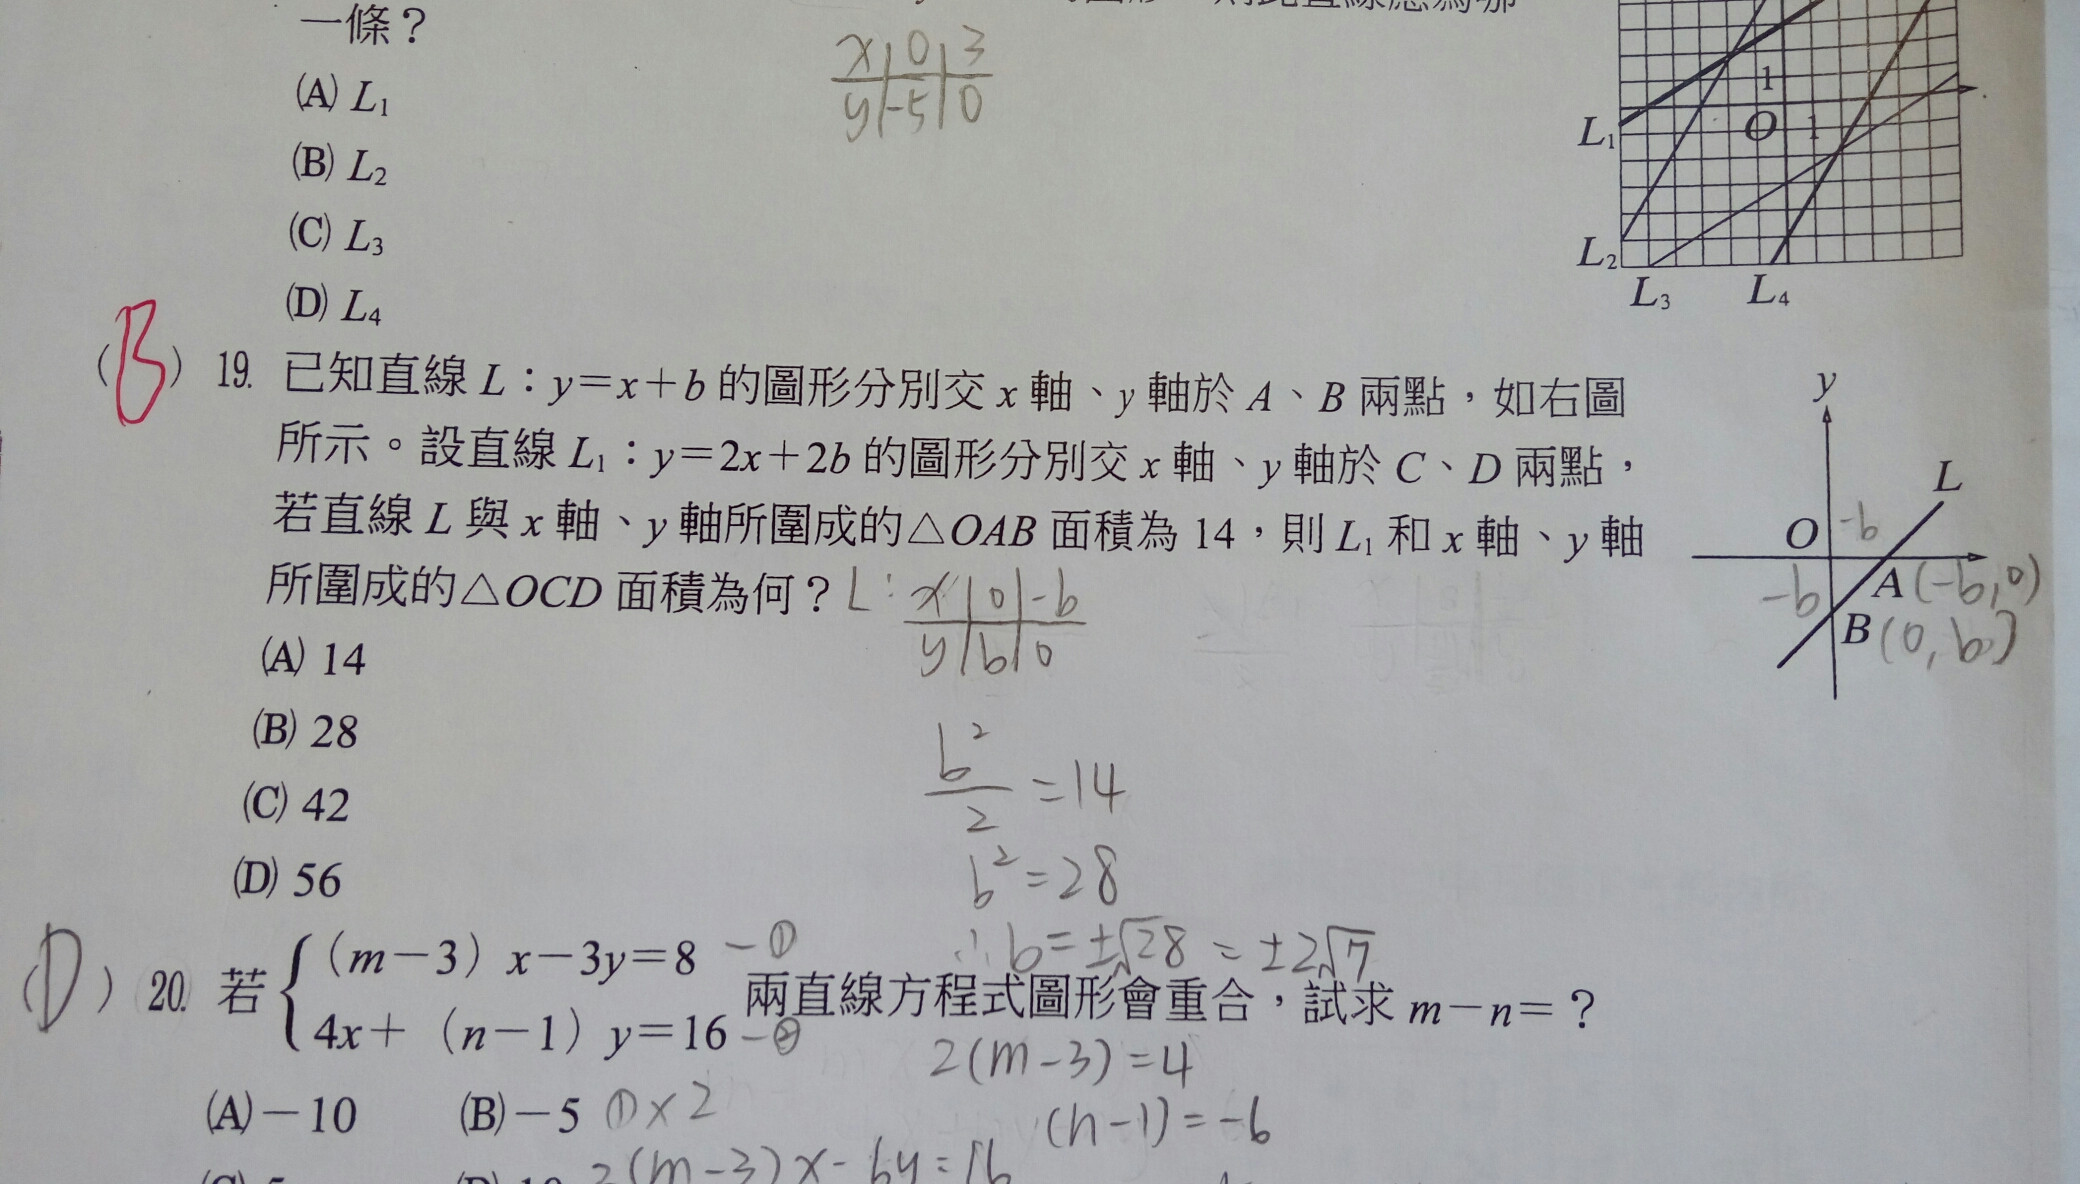 一條？
x 0 3
y -5 0
(A) L1
(B) L2
(C) L3
(D) L4
1
O 1
L1
L2
L3 L4
(B) 19. 已知直線 L：y＝x＋b 的圖形分別交 x 軸、y 軸於 A、B 兩點，如右圖
所示。設直線 L1：y＝2x＋2b 的圖形分別交 x 軸、y 軸於 C、D 兩點，
若直線 L 與 x 軸、y 軸所圍成的△OAB 面積為 14，則 L1 和 x 軸、y 軸
所圍成的△OCD 面積為何？
L: x 0 -b
y b 0
(A) 14
(B) 28
(C) 42
(D) 56
y
L
O -b
-b A (-b,0)
B (0,b)
b²/2 =14
b²=28
∴b=±√28=±2√7
(D) 20. 若 (m－3) x－3y＝8 -①
4x＋ (n－1) y＝16 -②
兩直線方程式圖形會重合，試求 m－n＝？
2(m-3)=4
(A)－10 (B)－5 ①×2
(n-1)=-6
2(m-3)x-6y=16